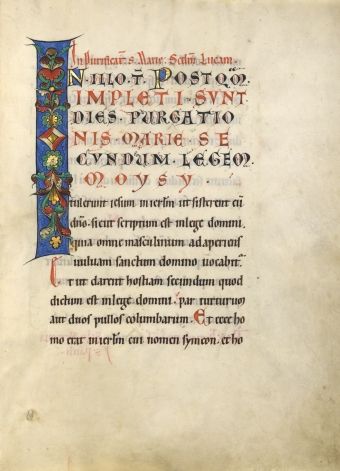 In Purificat̄. s. Marie. Scđm Lucam.
IN ILLO. T̄. POSTQ̄M
IMPLETI. SUNT
DIES. PURGATIO
NIS. MARIE. SE
CUNDUM. LEGEM.
MOYSY.
tulerunt iesum in ierl̄m ut sisterent eum
dn̄o. sicut scriptum est in lege domini.
quia omne masculinum adaperiens
uuluam sanctum domino uocabit᷑.
Et ut darent hostiam secundum quod
dictum est in lege domini. par turturum
aut duos pullos columbarum. Et ecce ho
mo erat in ierl̄m cui nomen symeon. et ho